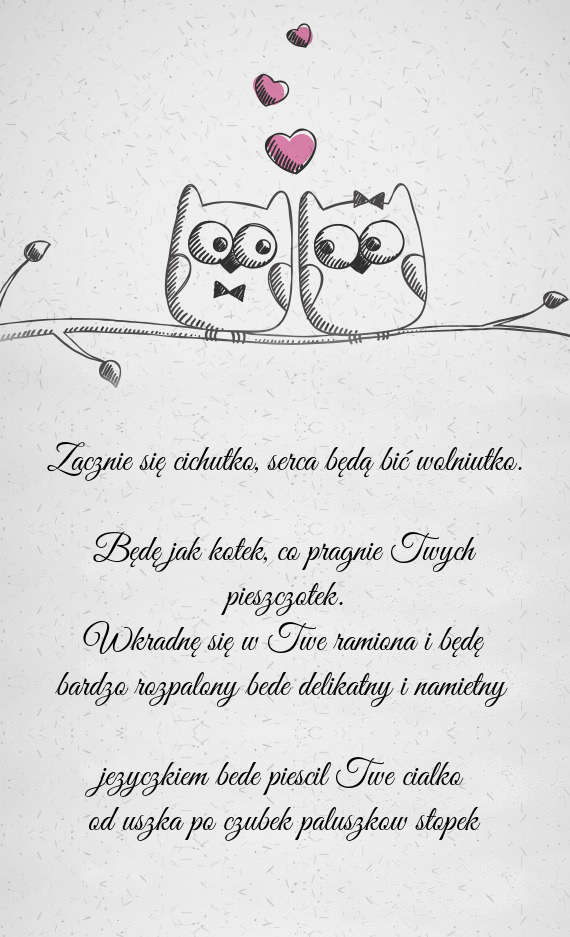 Zacznie się cichutko, serca będą bić wolniutko.
Będę jak kotek, co pragnie Twych
pieszczotek.
Wkradnę się w Twe ramiona i będę
bardzo rozpalony bede delikatny i namietny
jezyczkiem bede piescil Twe cialko
od uszka po czubek paluszkow stopek